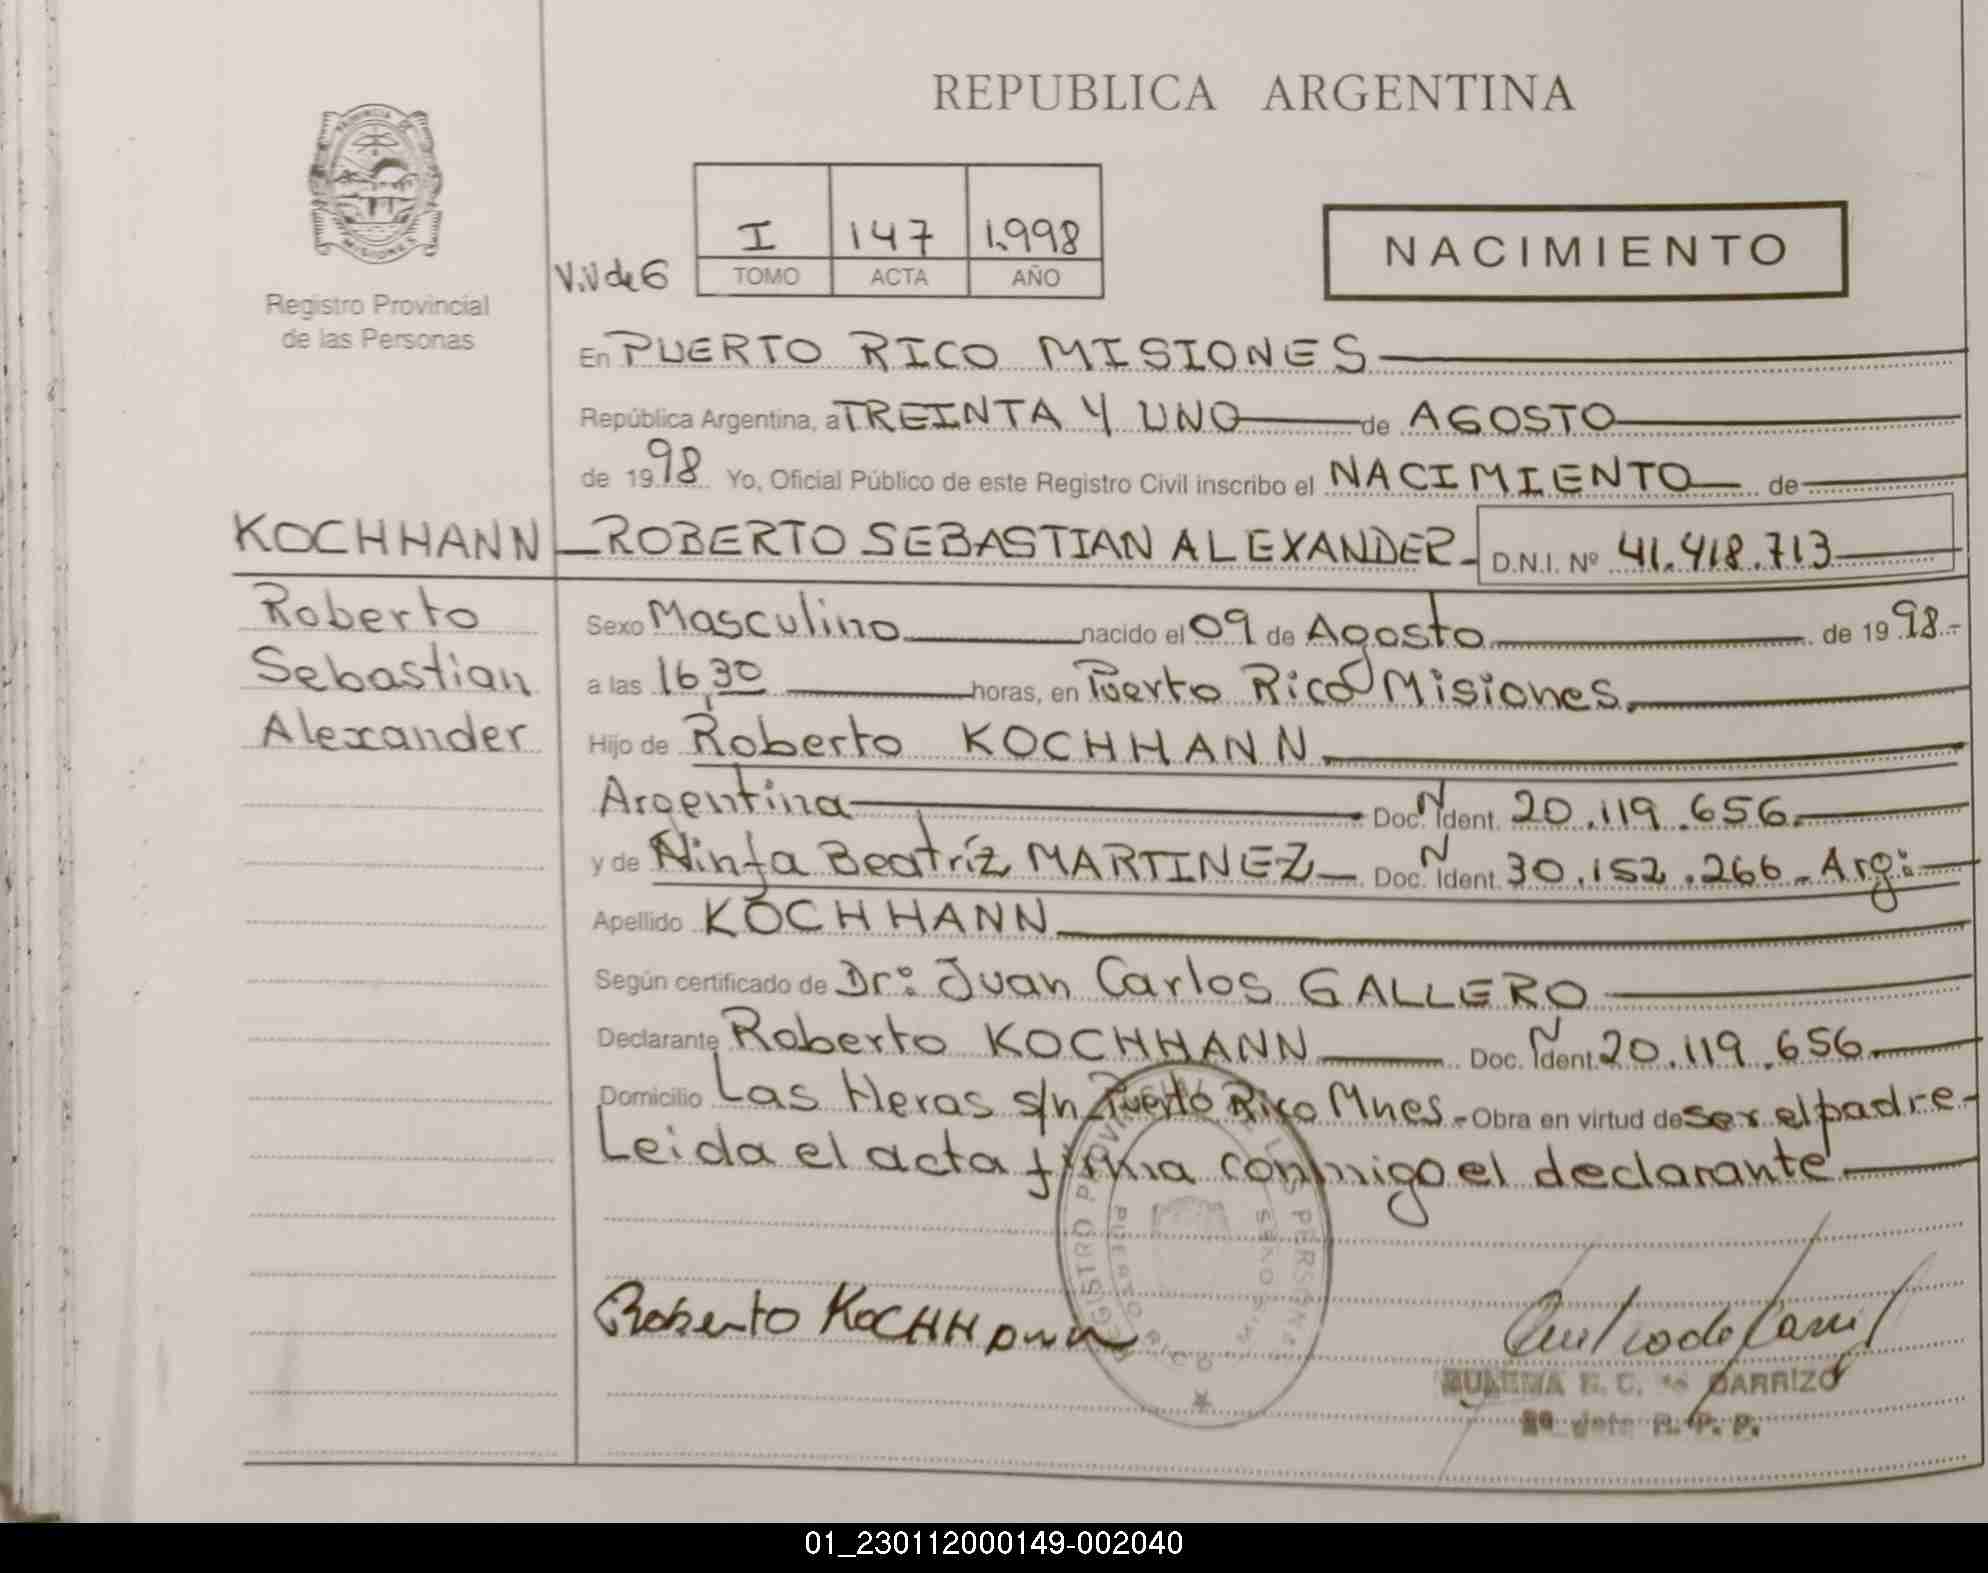 REPUBLICA ARGENTINA
PROVINCIA DE
MISIONES
Registro Provincial
de las Personas
V.V de 6
I 147 1.998
TOMO ACTA AÑO
NACIMIENTO
En PUERTO RICO MISIONES
República Argentina, a TREINTA Y UNO de AGOSTO
de 1998 Yo, Oficial Público de este Registro Civil inscribo el NACIMIENTO de
KOCHHANN ROBERTO SEBASTIAN ALEXANDER D.N.I. Nº 41.418.713
Roberto
Sebastian
Alexander
Sexo Masculino nacido el 09 de Agosto de 1998.-
a las 16,30 horas, en Puerto Rico Misiones.
Hijo de Roberto KOCHHANN
Argentina Doc. Ident. N 20.119.656.
y de Ninfa Beatríz MARTINEZ Doc. Ident. N 30.152.266 - Arg:
Apellido KOCHHANN
Según certificado de Dr: Juan Carlos GALLERO
Declarante Roberto KOCHHANN Doc. Ident. N 20.119.656
Domicilio Las Heras s/n Puerto Rico Mnes.- Obra en virtud de ser el padre-
Leida el acta firma conmigo el declarante
REGISTRO PROVINCIAL DE LAS PERSONAS
PUERTO RICO MISIONES
Roberto KOCHHann
ZULEMA E. C. de CARRIZO
2º Jefe R. P. P.
01_230112000149-002040